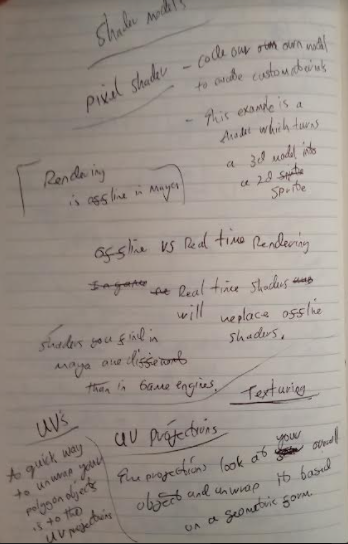 Shader models
pixel shader - code our own own model
to create custom shaders
- This example is a
shader which turns
a 3d model into
a 2d sprite
sprite
Rendering
is offline in maya
offline vs Real time Rendering
In game Real time shaders
will replace offline
shaders.
shaders you find in
maya are different
than in Game engines.
Texturing
UV's
A quick way
to unwrap your
polygon objects
is to the
UV projections
UV projections
The projections look at your overall
object and unwrap it based
on a geometric form